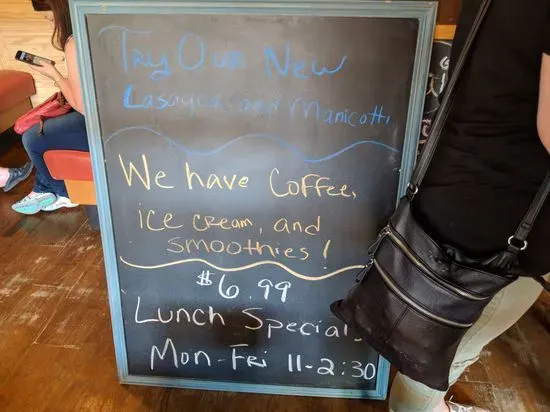 Try Our New
Lasagna and Manicotti
We have Coffee,
ice cream, and
smoothies!
$6.99
Lunch Special
Mon-Fri 11-2:30